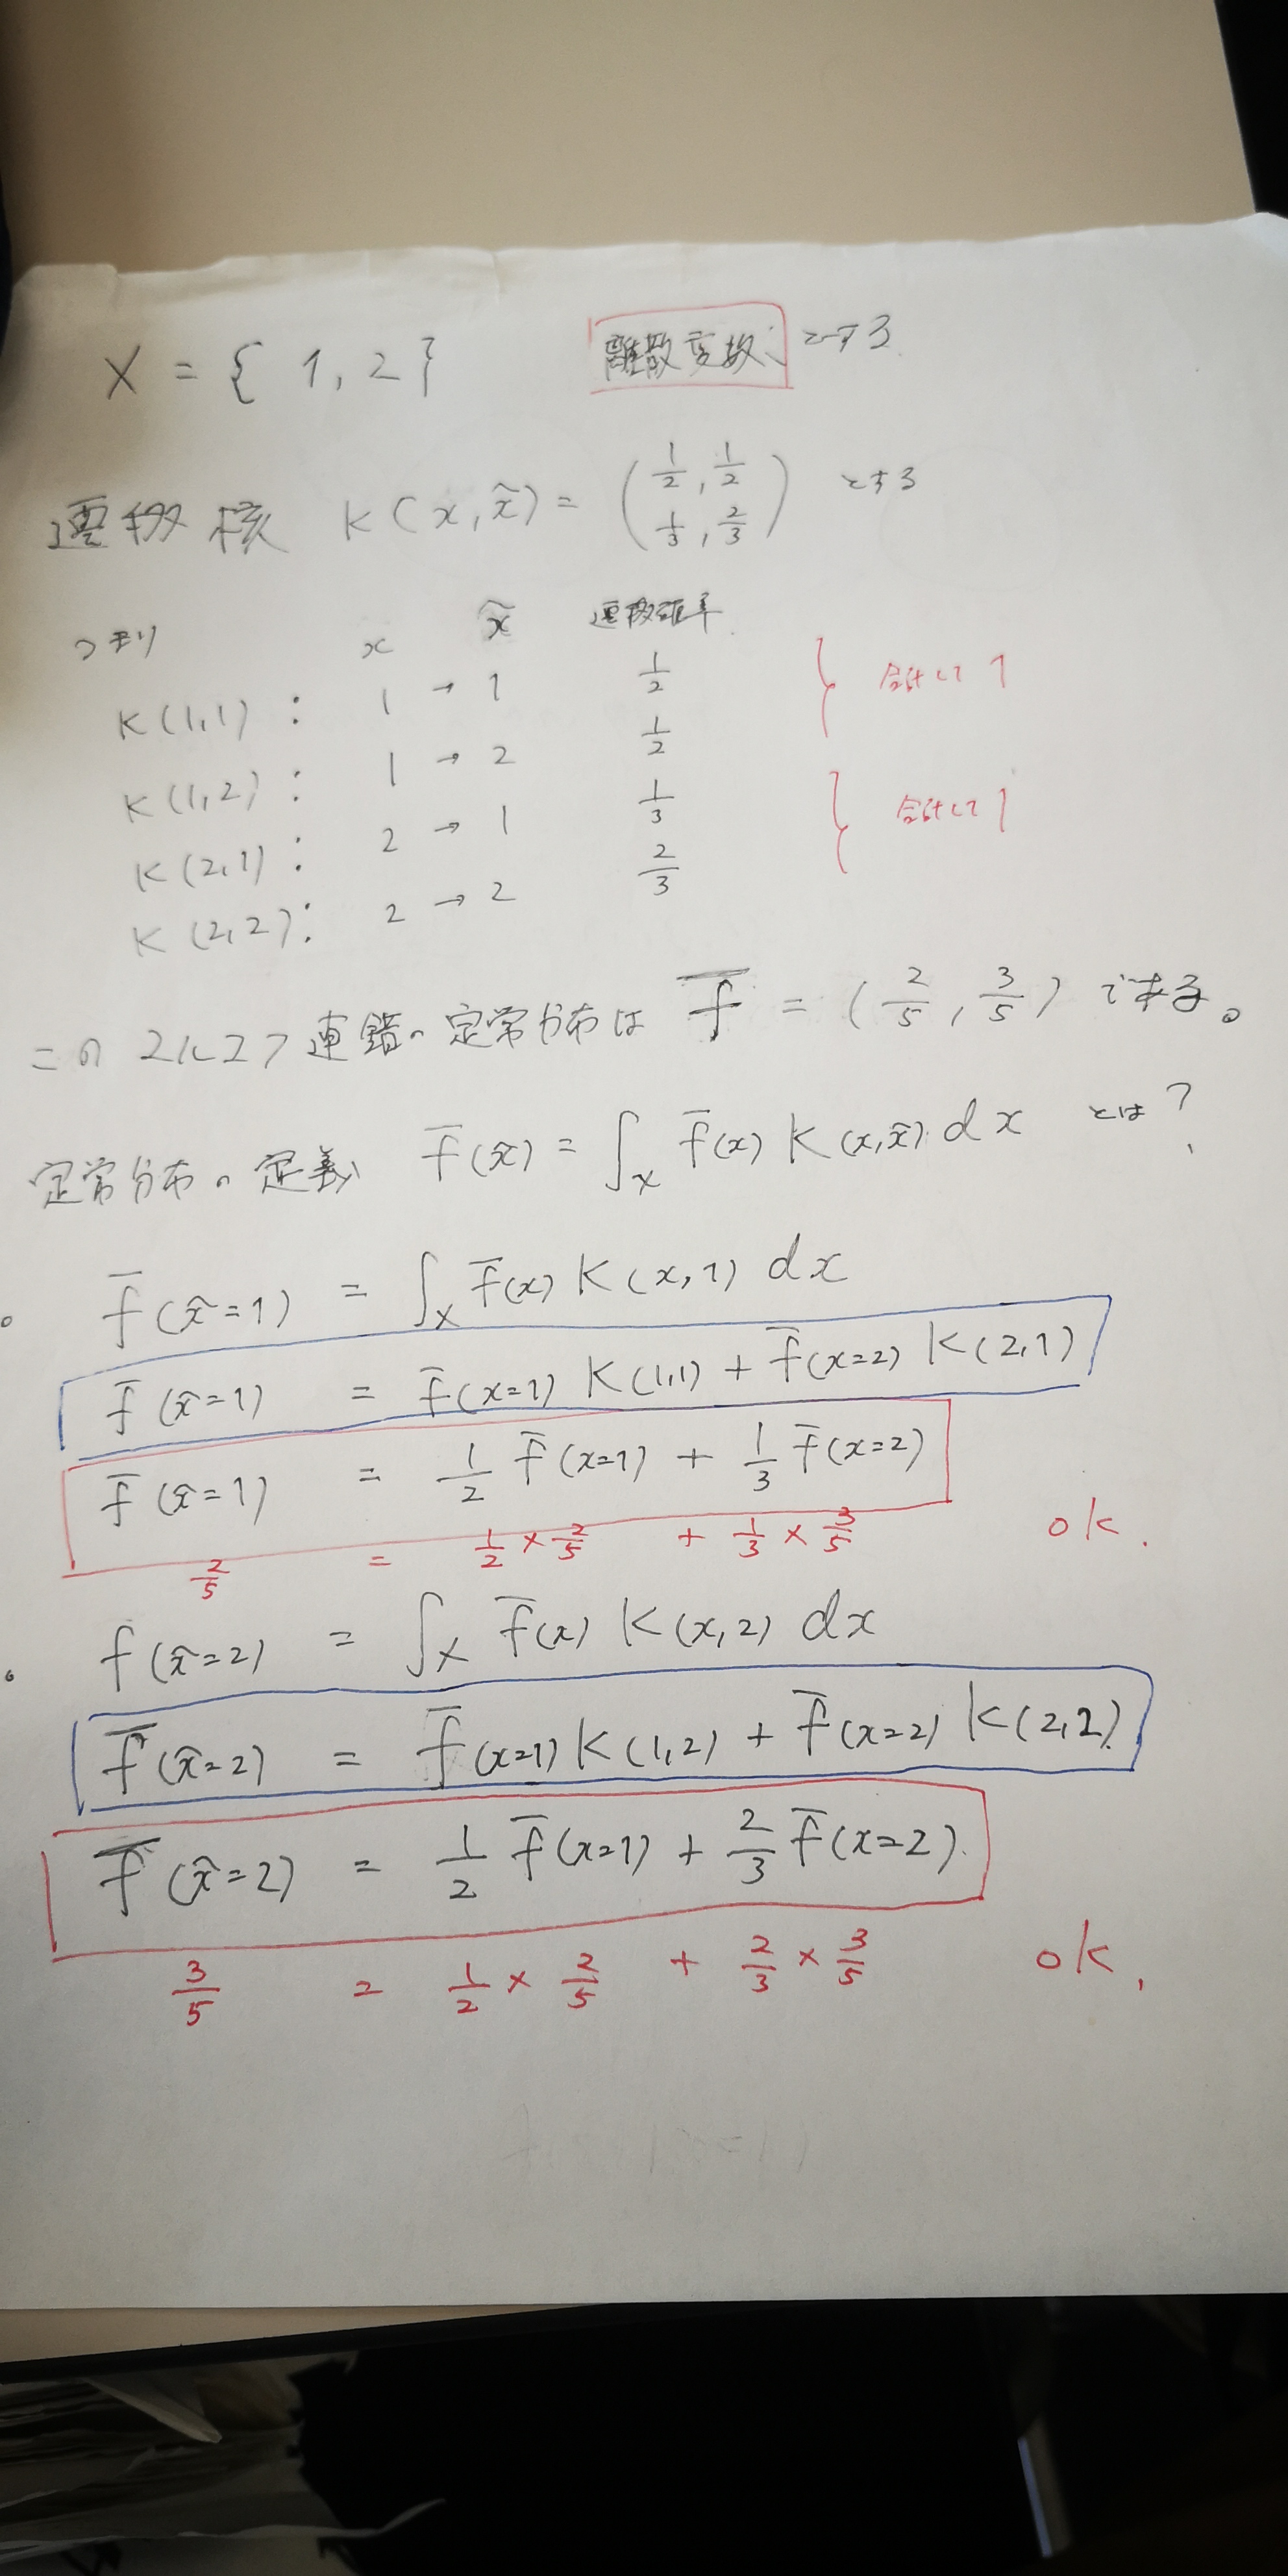 X = { 1, 2 } 離散変数 とする
遷移核 K(x, x̃) = ( 1/2, 1/2 ; 1/3, 2/3 ) とする
つまり x x̃ 遷移確率
K(1,1) : 1 → 1 1/2
K(1,2) : 1 → 2 1/2 } 合計して 1
K(2,1) : 2 → 1 1/3
K(2,2) : 2 → 2 2/3 } 合計して 1
この マルコフ 連鎖の 定常分布は f̄ = ( 2/5 , 3/5 ) である。
定常分布の定義 f̄(x̃) = ∫_X f̄(x) K(x,x̃) dx とは?
。 f̄(x̃=1) = ∫_X f̄(x) K(x,1) dx
f̄(x̃=1) = f̄(x=1) K(1,1) + f̄(x=2) K(2,1)
f̄(x̃=1) = 1/2 f̄(x=1) + 1/3 f̄(x=2)
2/5 = 1/2 × 2/5 + 1/3 × 3/5 ok.
。 f(x̃=2) = ∫_X f̄(x) K(x,2) dx
f̄(x̃=2) = f̄(x=1) K(1,2) + f̄(x=2) K(2,2)
f̄(x̃=2) = 1/2 f̄(x=1) + 2/3 f̄(x=2)
3/5 = 1/2 × 2/5 + 2/3 × 3/5 ok.